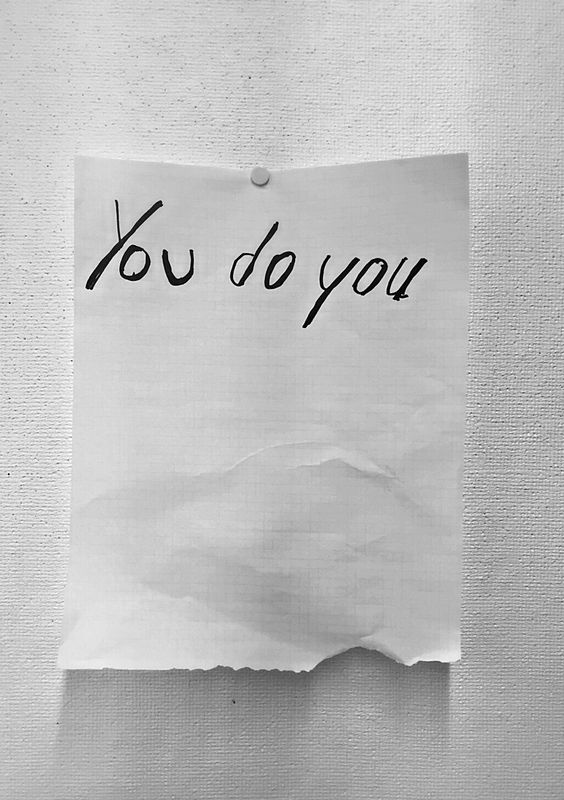 You do you